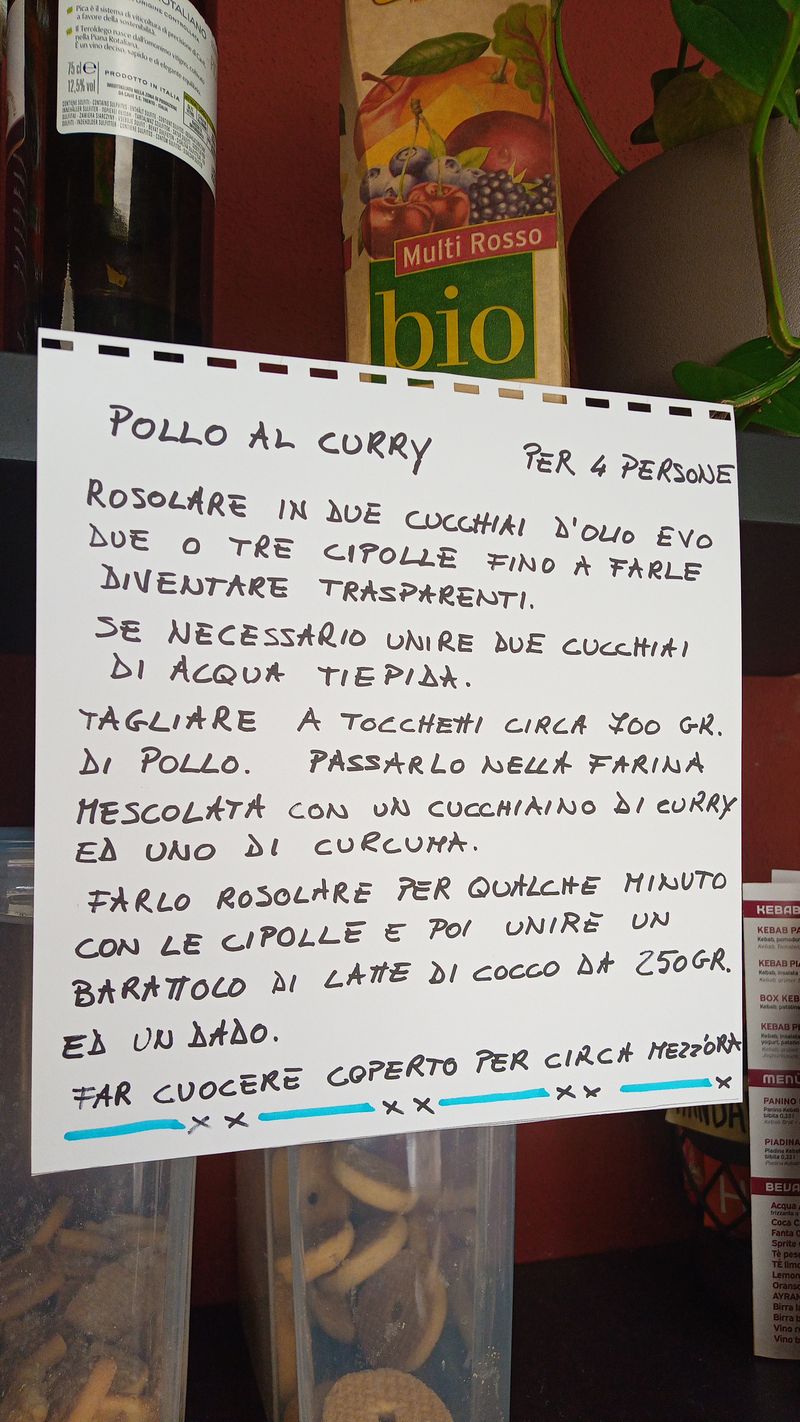 Pica è il sistema di viticoltura di precisione di Cavit
a favore della sostenibilità.
Il Teroldego nasce dall'omonimo vitigno, coltivato
nella Piana Rotaliana.
È un vino deciso, sapido e di elegante equilibrio.
75 cl e
12,5% vol
PRODOTTO IN ITALIA
Multi Rosso
bio
POLLO AL CURRY PER 4 PERSONE
ROSOLARE IN DUE CUCCHIAI D'OLIO EVO
DUE O TRE CIPOLLE FINO A FARLE
DIVENTARE TRASPARENTI.
SE NECESSARIO UNIRE DUE CUCCHIAI
DI ACQUA TIEPIDA.
TAGLIARE A TOCCHETTI CIRCA 700 GR.
DI POLLO. PASSARLO NELLA FARINA
MESCOLATA CON UN CUCCHIAINO DI CURRY
ED UNO DI CURCUMA.
FARLO ROSOLARE PER QUALCHE MINUTO
CON LE CIPOLLE E POI UNIRE UN
BARATTOLO DI LATTE DI COCCO DA 250GR.
ED UN DADO.
FAR CUOCERE COPERTO PER CIRCA MEZZ'ORA
x x x x x x x
KEBAB
KEBAB PA
Kebab, pomodo
KEBAB PIA
Kebab, insalata
BOX KEB
Kebab, patatine
KEBAB PI
Kebab, insalat
yogurt, patatin
MENÙ
PANINO
Panino Keba
bibita 0,33 l
PIADINA
Piadina Keba
bibita 0,33 l
BEVA
Acqua
frizzante o
Coca C
Fanta 0
Sprite
Tè pes
TÈ limo
Lemon
Orans
AYRAN
Birra I
Birra b
Vino r
Vino b